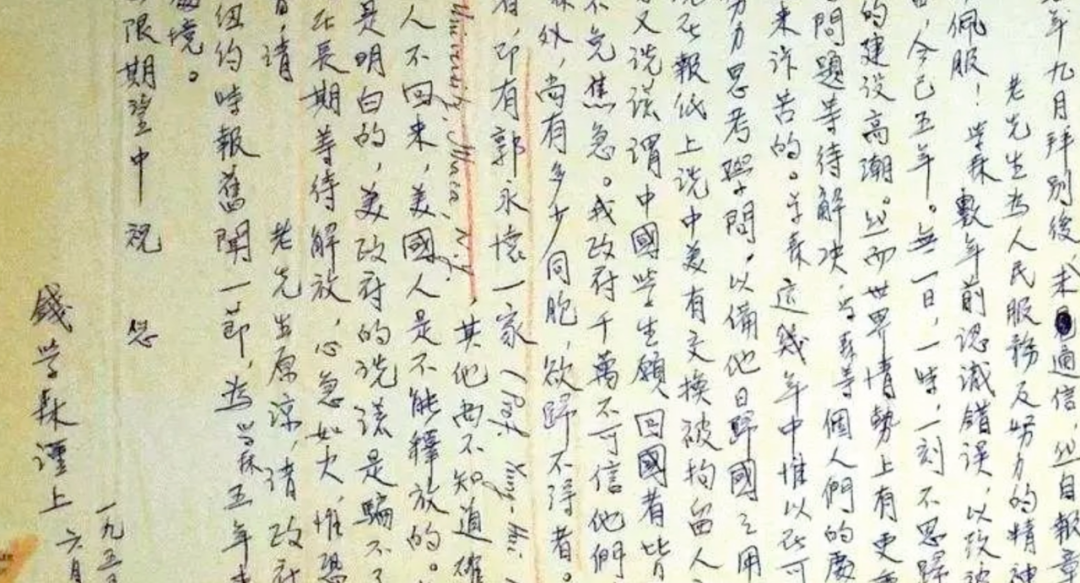 年九月拜別後,未通信,然自報章
老先生為人民服務及努力的精神
佩服!学森數年前認識錯誤,以致被
今已五年。無一日,一時,一刻不思歸
的建設高潮。然而世界情勢上有更
問題等待解决,学森等個人們的處
來訴苦的。学森這幾年中惟以在可
努力思考學問,以備他日歸國之用
現在報紙上說中美有交換被拘留人
又說謊謂中國学生願回國者皆
不免焦急。我政府千萬不可信他們
外,尚有多少同胞,欲歸不得者。
者,即有郭永懷一家 (Prof. Yung-
University, Ithaca, N.Y.,其他尚不知道確
人不回來,美國人是不能釋放的。
是明白的,美政府的說謊是騙不了
在長期等待解放,心急如火,惟恐
請老先生原涼,請政府
紐約時報舊聞一節,為学森五年來
處境。
無限期望中祝 您
錢学森謹上
一九五
六月